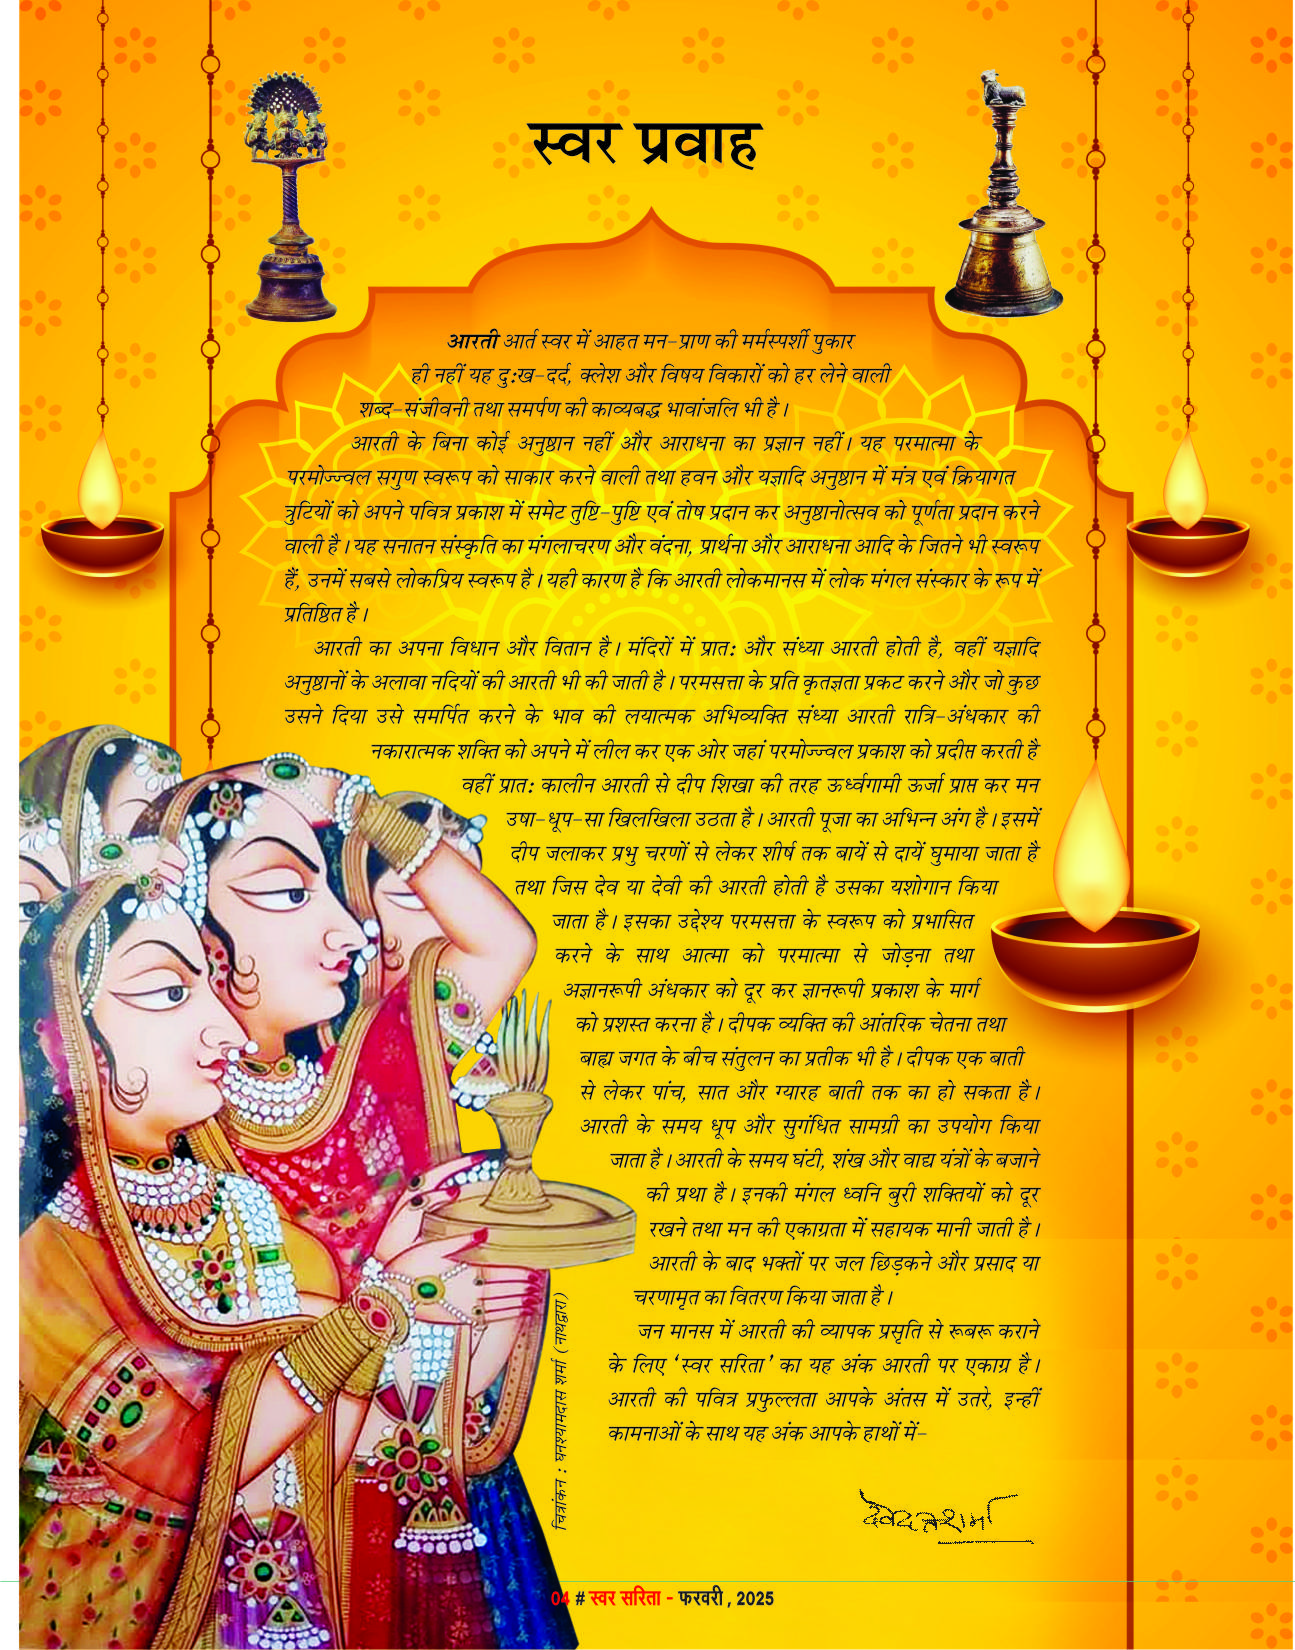 स्वर प्रवाह
आरती आर्त स्वर में आहत मन-प्राण की मर्मस्पर्शी पुकार
ही नहीं यह दुःख-दर्द, क्लेश और विषय विकारों को हर लेने वाली
शब्द-संजीवनी तथा समर्पण की काव्यबद्ध भावांजलि भी है।
आरती के बिना कोई अनुष्ठान नहीं और आराधना का प्रज्ञान नहीं। यह परमात्मा के
परमोज्ज्वल सगुण स्वरूप को साकार करने वाली तथा हवन और यज्ञादि अनुष्ठान में मंत्र एवं क्रियागत
त्रुटियों को अपने पवित्र प्रकाश में समेट तुष्टि-पुष्टि एवं तोष प्रदान कर अनुष्ठानोत्सव को पूर्णता प्रदान करने
वाली है। यह सनातन संस्कृति का मंगलाचरण और वंदना, प्रार्थना और आराधना आदि के जितने भी स्वरूप
हैं, उनमें सबसे लोकप्रिय स्वरूप है। यही कारण है कि आरती लोकमानस में लोक मंगल संस्कार के रूप में
प्रतिष्ठित है।
आरती का अपना विधान और वितान है। मंदिरों में प्रातः और संध्या आरती होती है, वहीं यज्ञादि
अनुष्ठानों के अलावा नदियों की आरती भी की जाती है। परमसत्ता के प्रति कृतज्ञता प्रकट करने और जो कुछ
उसने दिया उसे समर्पित करने के भाव की लयात्मक अभिव्यक्ति संध्या आरती रात्रि-अंधकार की
नकारात्मक शक्ति को अपने में लील कर एक ओर जहां परमोज्ज्वल प्रकाश को प्रदीप्त करती है
वहीं प्रातः कालीन आरती से दीप शिखा की तरह ऊर्ध्वगामी ऊर्जा प्राप्त कर मन
उषा-धूप-सा खिलखिला उठता है। आरती पूजा का अभिन्न अंग है। इसमें
दीप जलाकर प्रभु चरणों से लेकर शीर्ष तक बायें से दायें घुमाया जाता है
तथा जिस देव या देवी की आरती होती है उसका यशोगान किया
जाता है। इसका उद्देश्य परमसत्ता के स्वरूप को प्रभासित
करने के साथ आत्मा को परमात्मा से जोड़ना तथा
अज्ञानरूपी अंधकार को दूर कर ज्ञानरूपी प्रकाश के मार्ग
को प्रशस्त करना है। दीपक व्यक्ति की आंतरिक चेतना तथा
बाह्य जगत के बीच संतुलन का प्रतीक भी है। दीपक एक बाती
से लेकर पांच, सात और ग्यारह बाती तक का हो सकता है।
आरती के समय धूप और सुगंधित सामग्री का उपयोग किया
जाता है। आरती के समय घंटी, शंख और वाद्य यंत्रों के बजाने
की प्रथा है। इनकी मंगल ध्वनि बुरी शक्तियों को दूर
रखने तथा मन की एकाग्रता में सहायक मानी जाती है।
आरती के बाद भक्तों पर जल छिड़कने और प्रसाद या
चरणामृत का वितरण किया जाता है।
जन मानस में आरती की व्यापक प्रसृति से रूबरू कराने
के लिए ‘स्वर सरिता’ का यह अंक आरती पर एकाग्र है।
आरती की पवित्र प्रफुल्लता आपके अंतस में उतरे, इन्हीं
कामनाओं के साथ यह अंक आपके हाथों में-
चित्रांकन : घनश्यामदास शर्मा (नाथद्वारा)
देवदत्त शर्मा
04 # स्वर सरिता - फरवरी, 2025